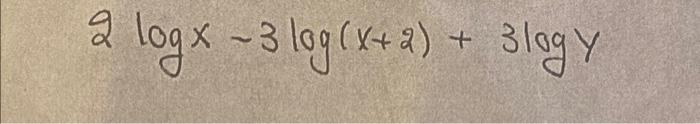 2 log x - 3 log (x+2) + 3 log y